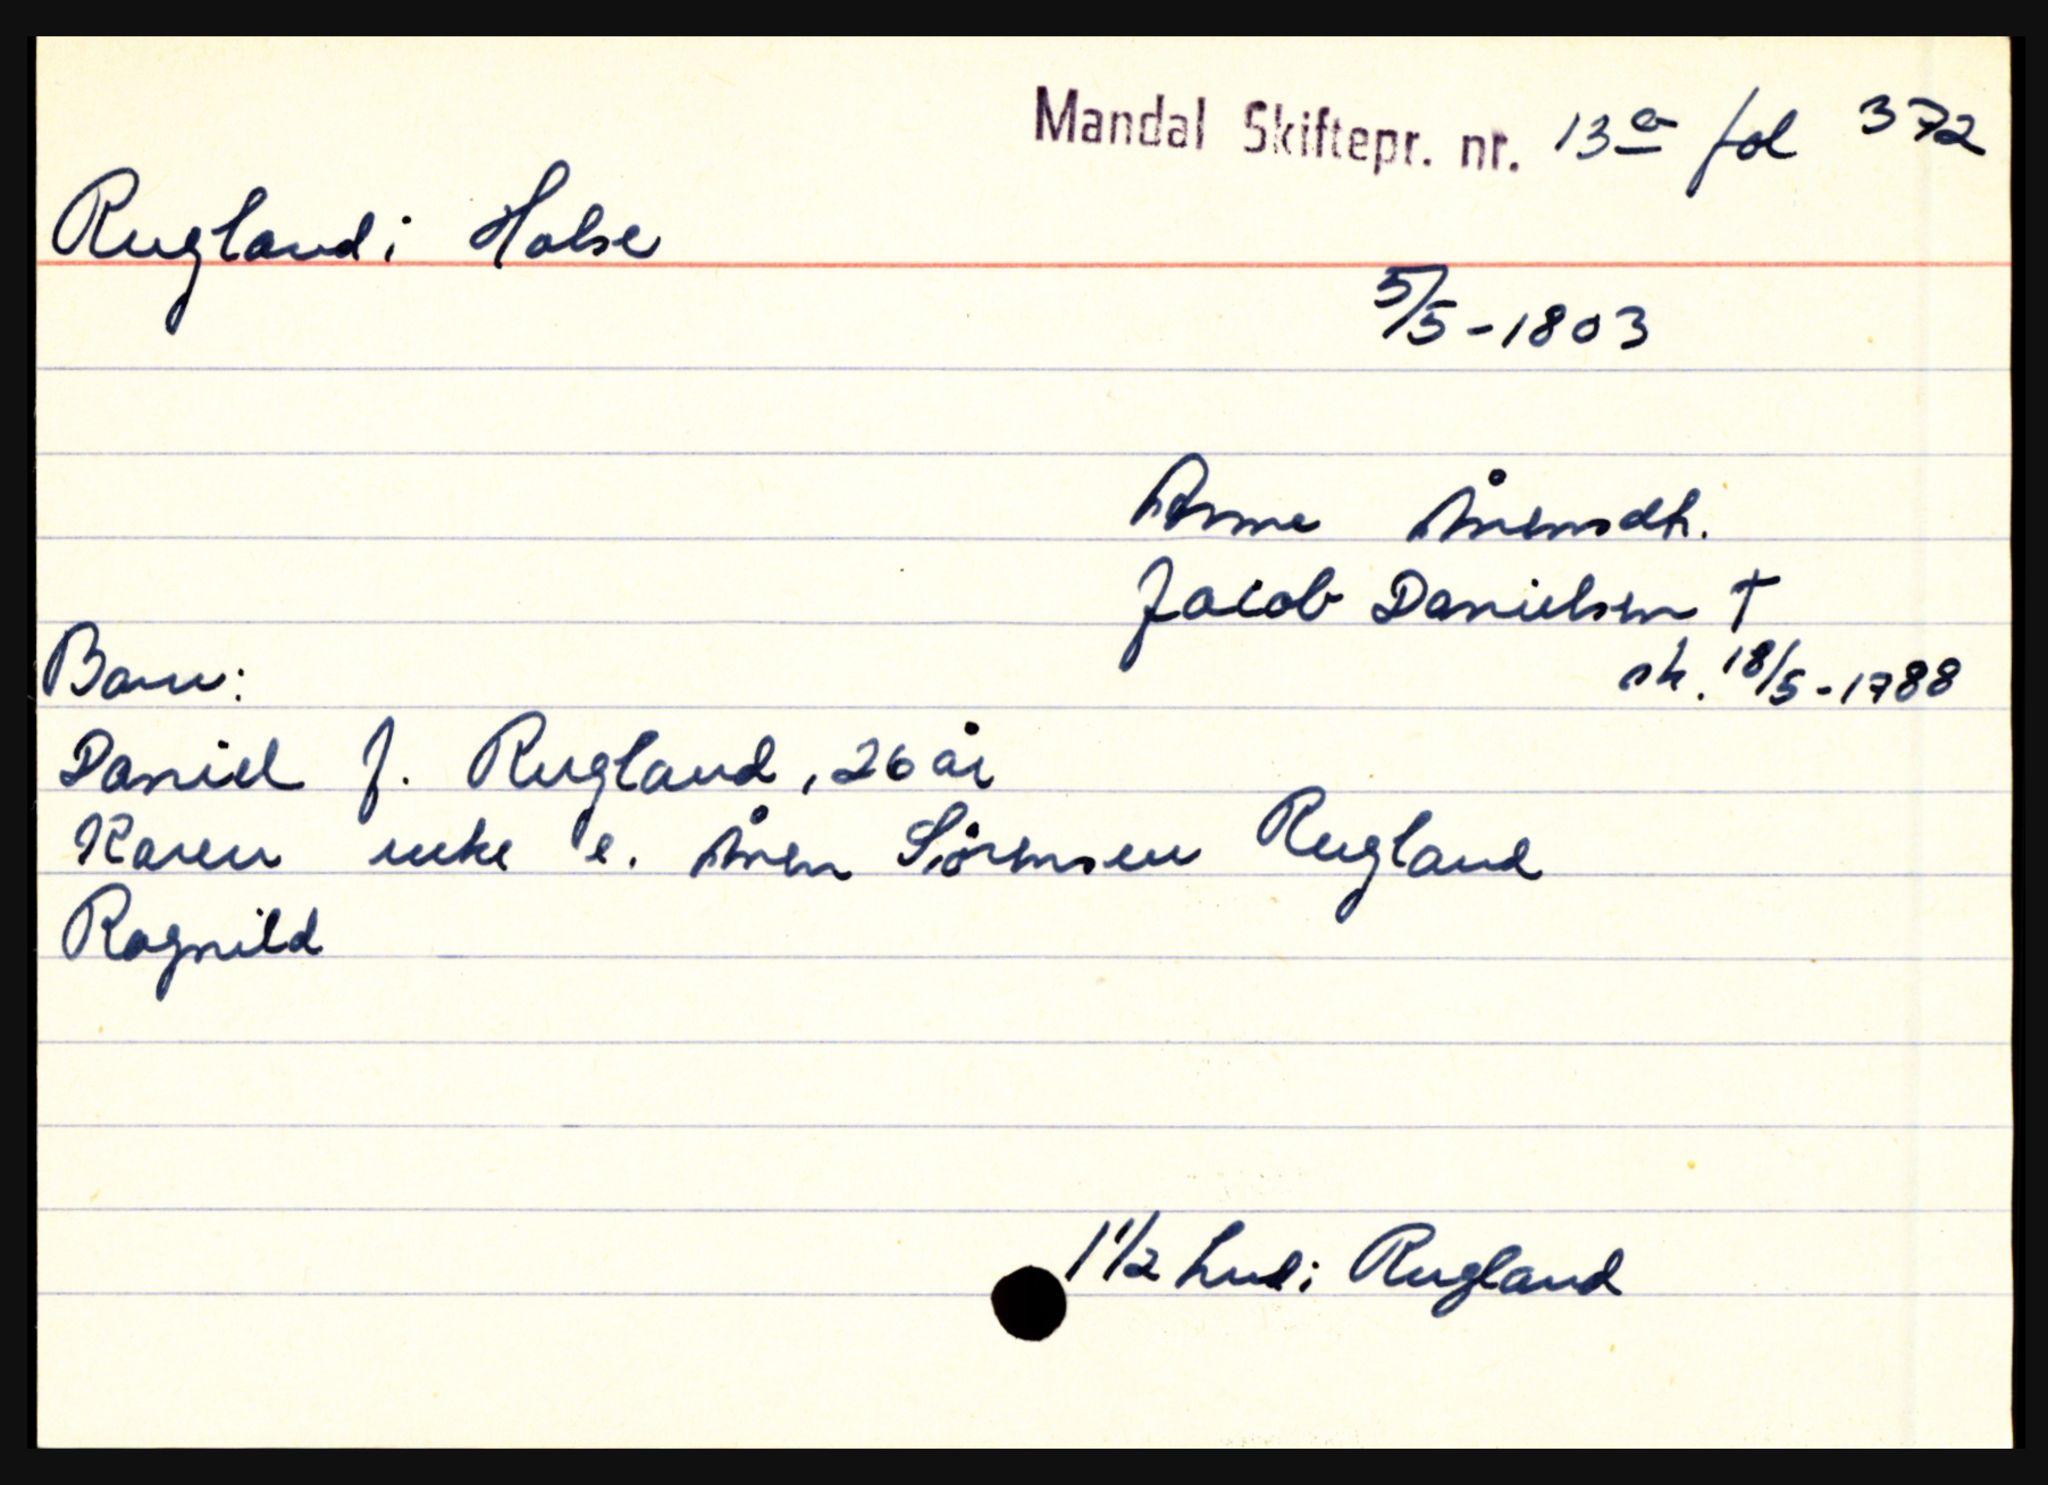 Mandal Skiftepr. nr. 13a fol 372
Rugland i Halse
5/5-1803
Anne Ånensdt.
Jacob Danielsen †
sk. 18/5-1788
Barn:
Daniel J. Rugland, 26 år
Karen enke e. Ånen Sörensen Rugland
Ragnild
1 1/2 hud i Rugland